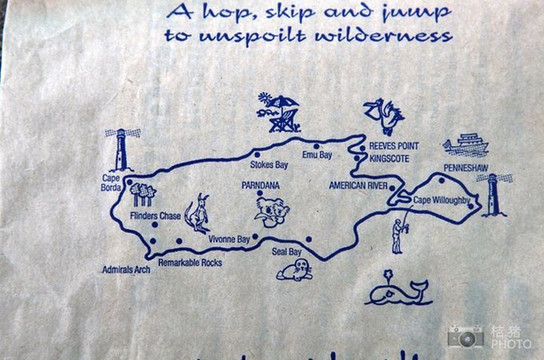 A hop, skip and jump
to unspoilt wilderness
Emu Bay
REEVES POINT
KINGSCOTE
Stokes Bay
PENNESHAW
Cape
Borda
PARNDANA
AMERICAN RIVER
Cape Willoughby
Flinders Chase
Vivonne Bay
Seal Bay
Remarkable Rocks
Admirals Arch
桔猪
PHOTO